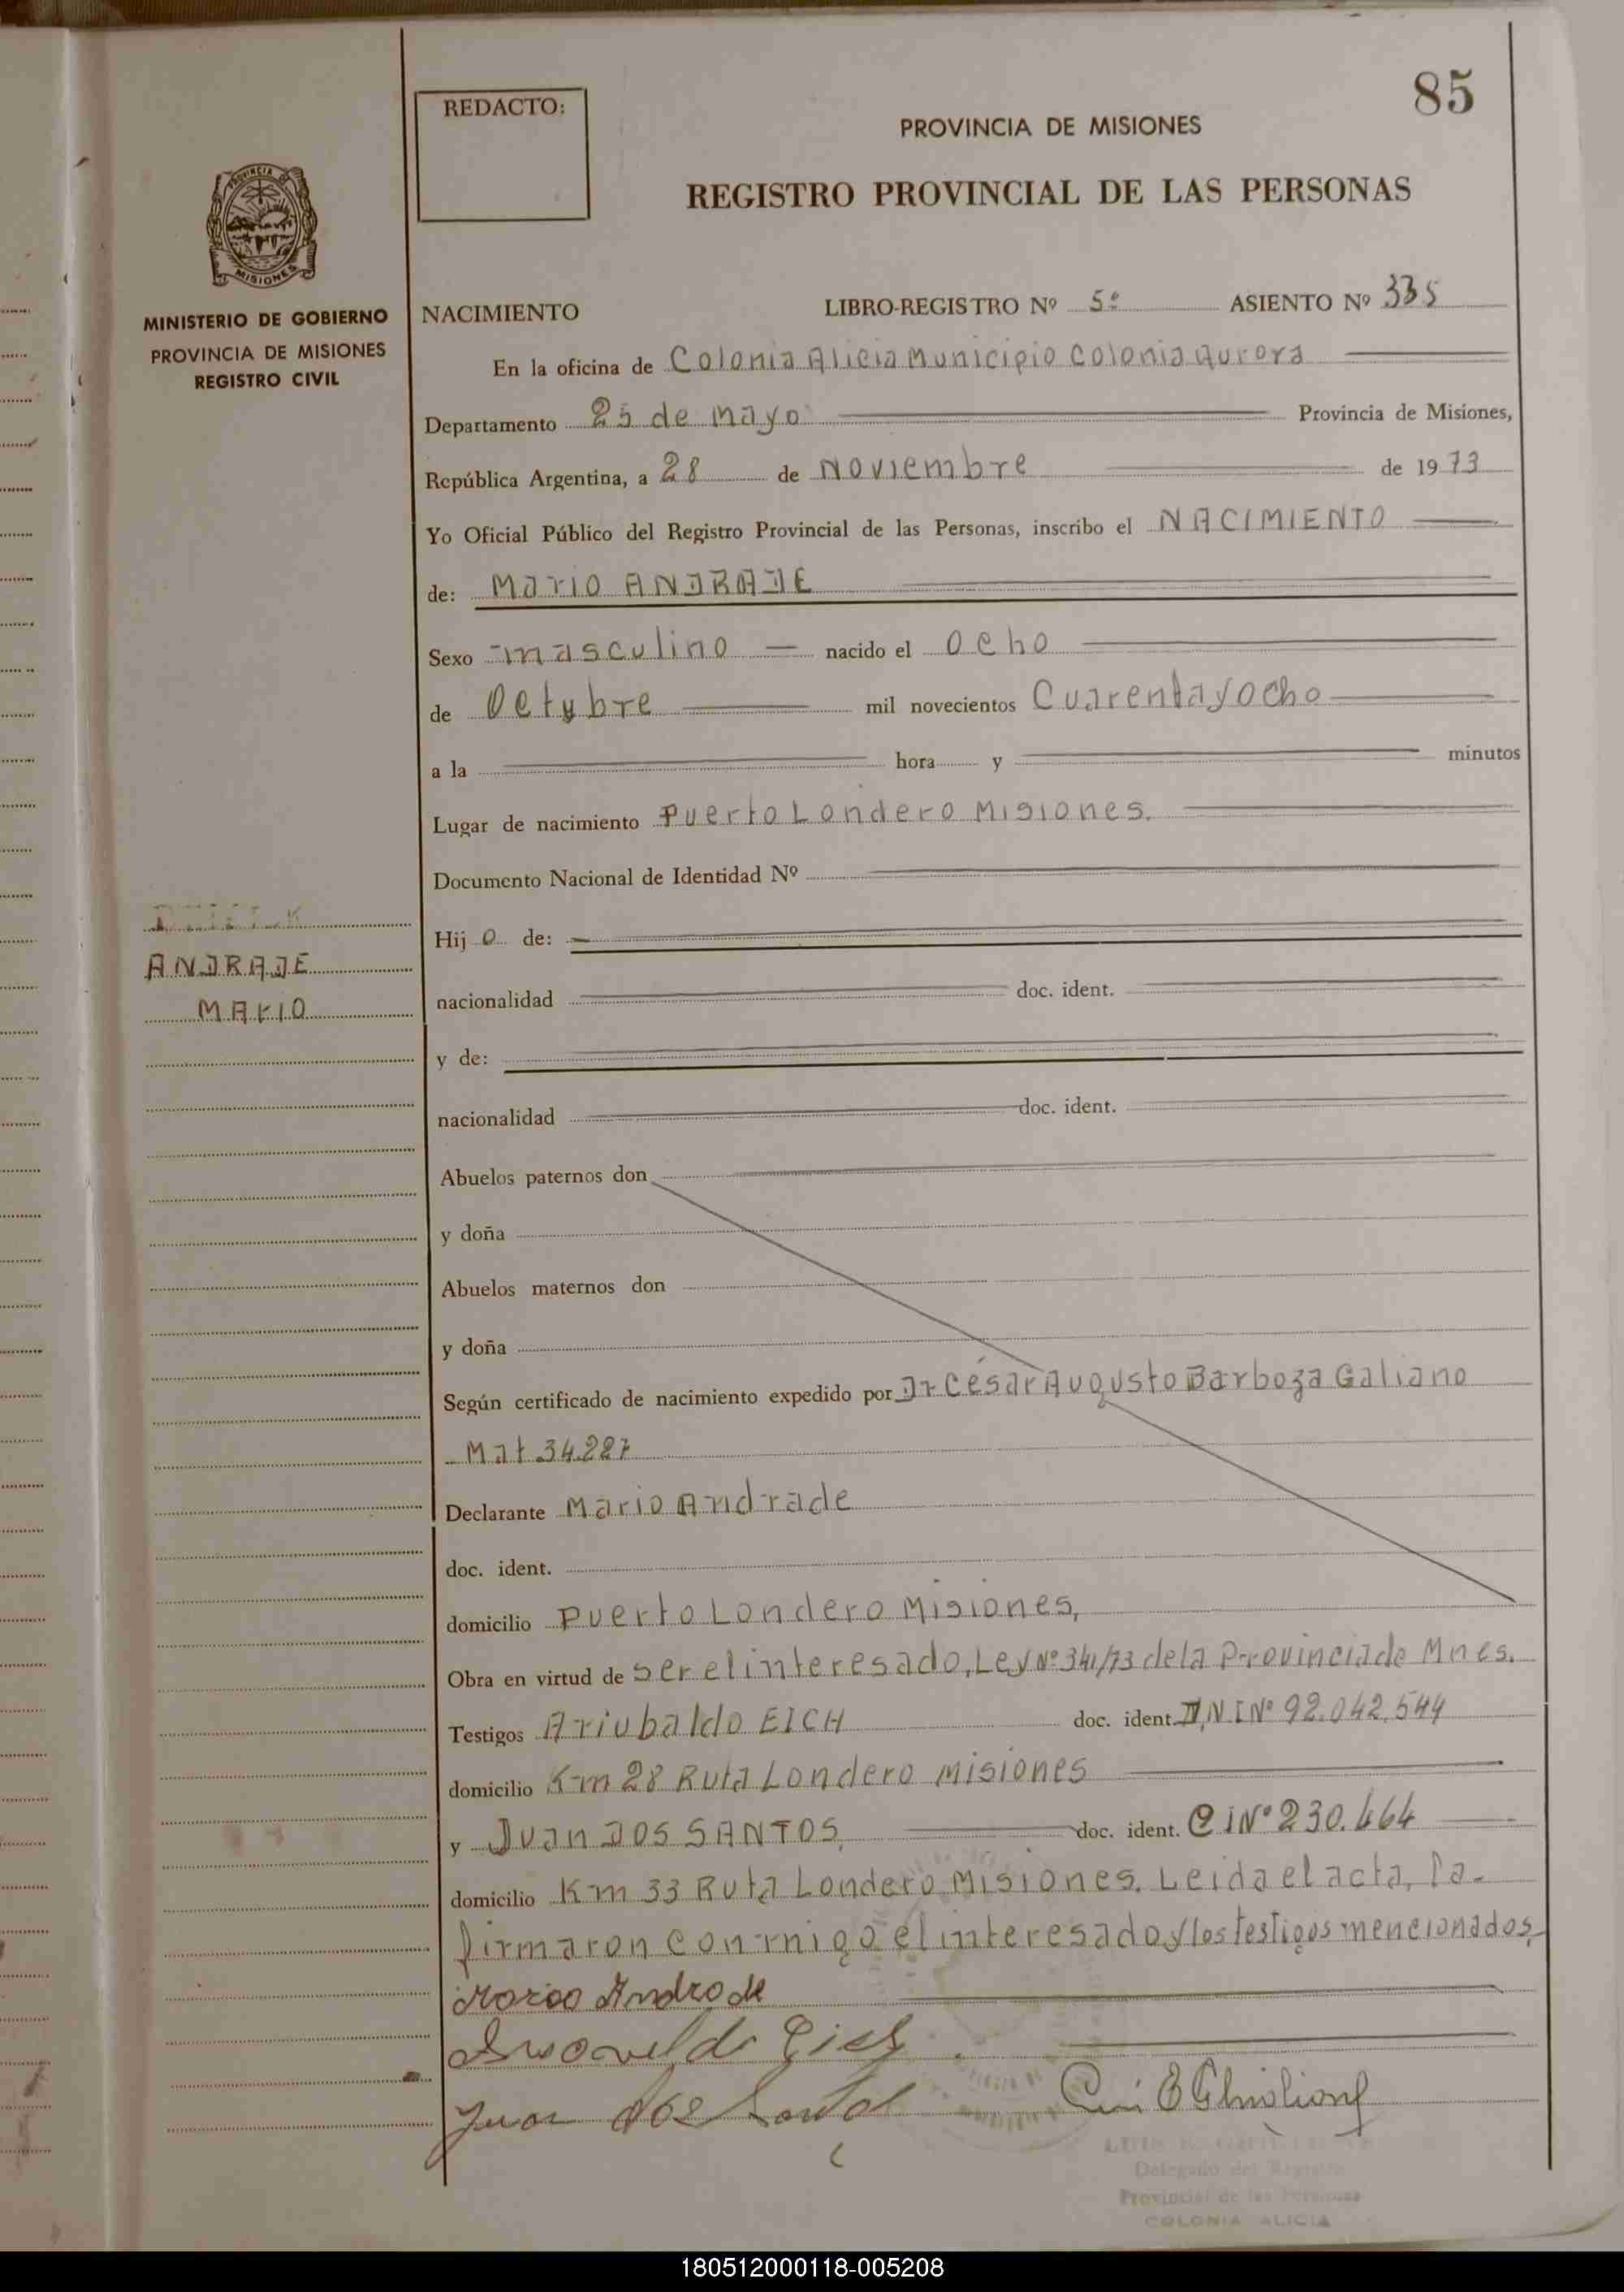 85
REDACTO:
PROVINCIA DE MISIONES
REGISTRO PROVINCIAL DE LAS PERSONAS
PROVINCIA DE
MISIONES
MINISTERIO DE GOBIERNO
PROVINCIA DE MISIONES
REGISTRO CIVIL
NACIMIENTO LIBRO-REGISTRO Nº 5º ASIENTO Nº 335
En la oficina de Colonia Alicia Municipio Colonia Aurora
Departamento 25 de Mayo Provincia de Misiones,
República Argentina, a 28 de Noviembre de 1973
Yo Oficial Público del Registro Provincial de las Personas, inscribo el NACIMIENTO
de: Mario ANDRADE
Sexo masculino nacido el Ocho
de Octubre mil novecientos Cuarentayocho
a la hora y minutos
Lugar de nacimiento Puerto Londero Misiones.
Documento Nacional de Identidad Nº
Hijo de:
ANDRADE
MARIO
nacionalidad doc. ident.
y de:
nacionalidad doc. ident.
Abuelos paternos don
y doña
Abuelos maternos don
y doña
Según certificado de nacimiento expedido por Dr César Augusto Barboza Galiano
Mat 34.227
Declarante Mario Andrade
doc. ident.
domicilio Puerto Londero Misiones,
Obra en virtud de ser el interesado, Ley Nº 341/73 de la Provincia de Mnes.
Testigos Ariubaldo EICH doc. ident. D,N.I Nº 92.042.544
domicilio Km 28 Ruta Londero Misiones
y Juan DOS SANTOS, doc. ident. C i Nº 230.464
domicilio Km 33 Ruta Londero Misiones. Leida el acta, la
firmaron conmigo el interesado y los testigos mencionados,
Mario Andrade
Juan dos Santos
Delegado del Registro
Provincial de las Personas
COLONIA ALICIA
180512000118-005208